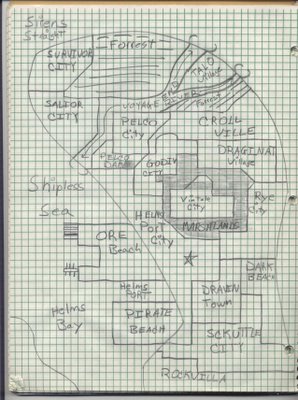 Sirens
Straight
SURVIVOR
CITY
Forrest
TALO
Village
SAILOR
CITY
VOYAGE
RIVER
Forrest
PELCO
City
CROLL
VILLE
PELCO
DAM
GODIN
CITY
DRAGINAT
Village
Shipless
Sea
Vintale
City
Rye
City
HELMS
Port
City
MARSHLANDS
ORE
Beach
DARK
BEACH
Helms
PORT
DRAVEN
Town
Helms
Bay
PIRATE
BEACH
SCKUTTLE
CITY
ROCKVILLA